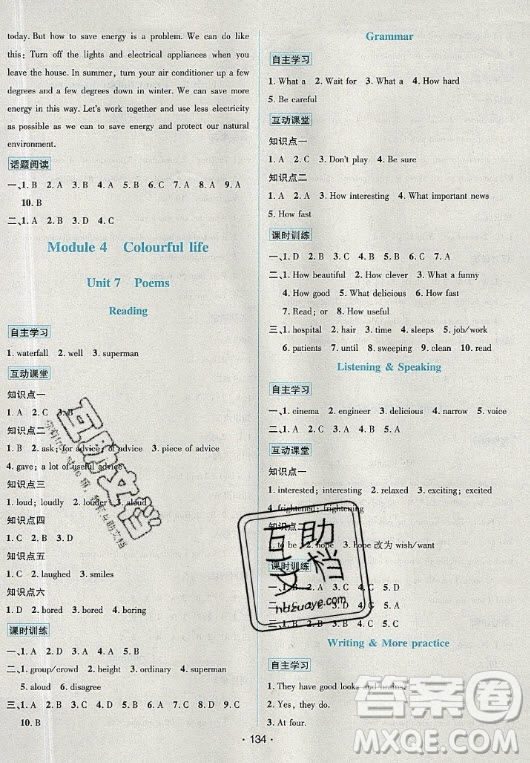 today. But how to save energy is a problem. We can do
like this: Turn off the lights and electrical appliances when you
leave the house. In summer, turn air conditioner up a few
degrees and a few degrees down in winter. We can save more
energy in this way. Let's work together to use less electricity
as possible as we can to save energy and protect our natural
environment.
话题阅读
一、1. B 2. A 3. B 4. A 5. B 6. A 7. B 8. C 9. A
10. B
二、1. B 2. A 3. D 4. C
Module 4 Colourful life
Unit 7 Poems
Reading
自主学习
1. waterfall 2. well 3. superman
互动课堂
知识点一
1. A 2. C 3. B
知识点二
1. B 2. A 3. advice 5. piece of advice
4. gave; a lot of useful advice
知识点三
1. loud; loudly
知识点四
1. D 2. C
知识点五
1. C 2. laughed 3. smiles
知识点六
1. D 2. D 3. bored 4. boring
课时训练
一、1. A 2. D 3. B 4. C 5. C
二、1. group/crowd 2. edge 3. ordinary 4. superman
5. aloud 6. disagree
三、1. C 2. D 3. C 4. A 5. B 6. B 7. C 8. A 9. D
10. B
Grammar
自主学习
1. What a 2. Wait for 3. What a 4. How hard
5. Be careful
互动课堂
知识点一
1. A 2. C 3. Don't play 4. Be sure
知识点二
1. D 2. A 3. How interesting 4. What important news
5. How fast
课时训练
一、1. D 2. D 3. C 4. A 5. B 6. C 7. B 8. B
二、1. How beautiful 2. How clever 3. What a funny
4. How good 5. What delicious 6. How fast
7. Read; or 8. How useful
三、1. hospital 2. hair 3. time 4. sleeps 5. job/work
6. patients 7. until 8. sweeping 9. clean 10. read
Listening & Speaking
自主学习
1. cinema 2. engineer 3. delicious 4. narrow 5. voice
互动课堂
知识点一
1. interested; interesting 2. relaxed 3. exciting; excited
4. frightened; frightening
知识点二
1. to be 2. hope 3. hope 改为 wish/want
课时训练
一、1. D 4. C 5. D
二、1. C 4. A 5. D
三、1. B 2. C 3. A 4. B 5. D
Writing & More practice
自主学习
1. They have good looks and
2. Yes, they do.
3. At four.
· 134 ·
互助文档
huzuaye.com
答案圈
MXQE.COM